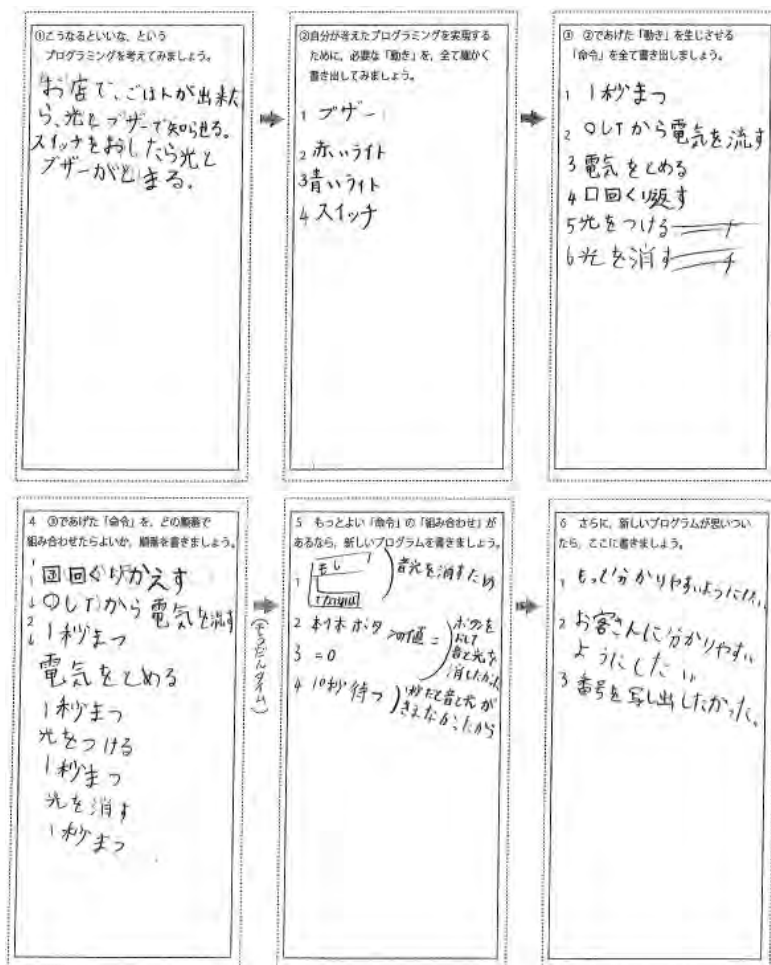 ①こうなるといいな、という
プログラミングを考えてみましょう。
お店で、ごはんが出来た
ら、光とブザーで知らせる。
スイッチをおしたら光と
ブザーがとまる。
②自分が考えたプログラミングを実現する
ために、必要な「動き」を、全て細かく
書き出してみましょう。
1 ブザー
2 赤いライト
3 青いライト
4 スイッチ
③ ②であげた「動き」を生じさせる
「命令」を全て書き出しましょう。
1 1秒まつ
2 から電気を流す
3 電気をとめる
4 口回くり返す
5 光をつける
6 光を消す
4 ③であげた「命令」を、どの順番で
組み合わせたらよいか、順番を書きましょう。
回くりかえす
から電気を流す
1秒まつ
電気をとめる
1秒まつ
光をつける
1秒まつ
光を消す
1秒まつ
(そうだんタイム)
5 もっとよい「命令」の「組み合わせ」が
あるなら、新しいプログラムを書きましょう。
1 もし
音光を消すため
2 ボタ の値=
ボタンを
おして
音と光を
消したかった
3 =0
4 10秒待つ
1秒だと音と光が
きえなかったから
6 さらに、新しいプログラムが思いつい
たら、ここに書きましょう。
1 もっと分かりやすいようにしたい
2 お客さんに分かりやすい
ようにしたい
3 番号を写し出したかった。